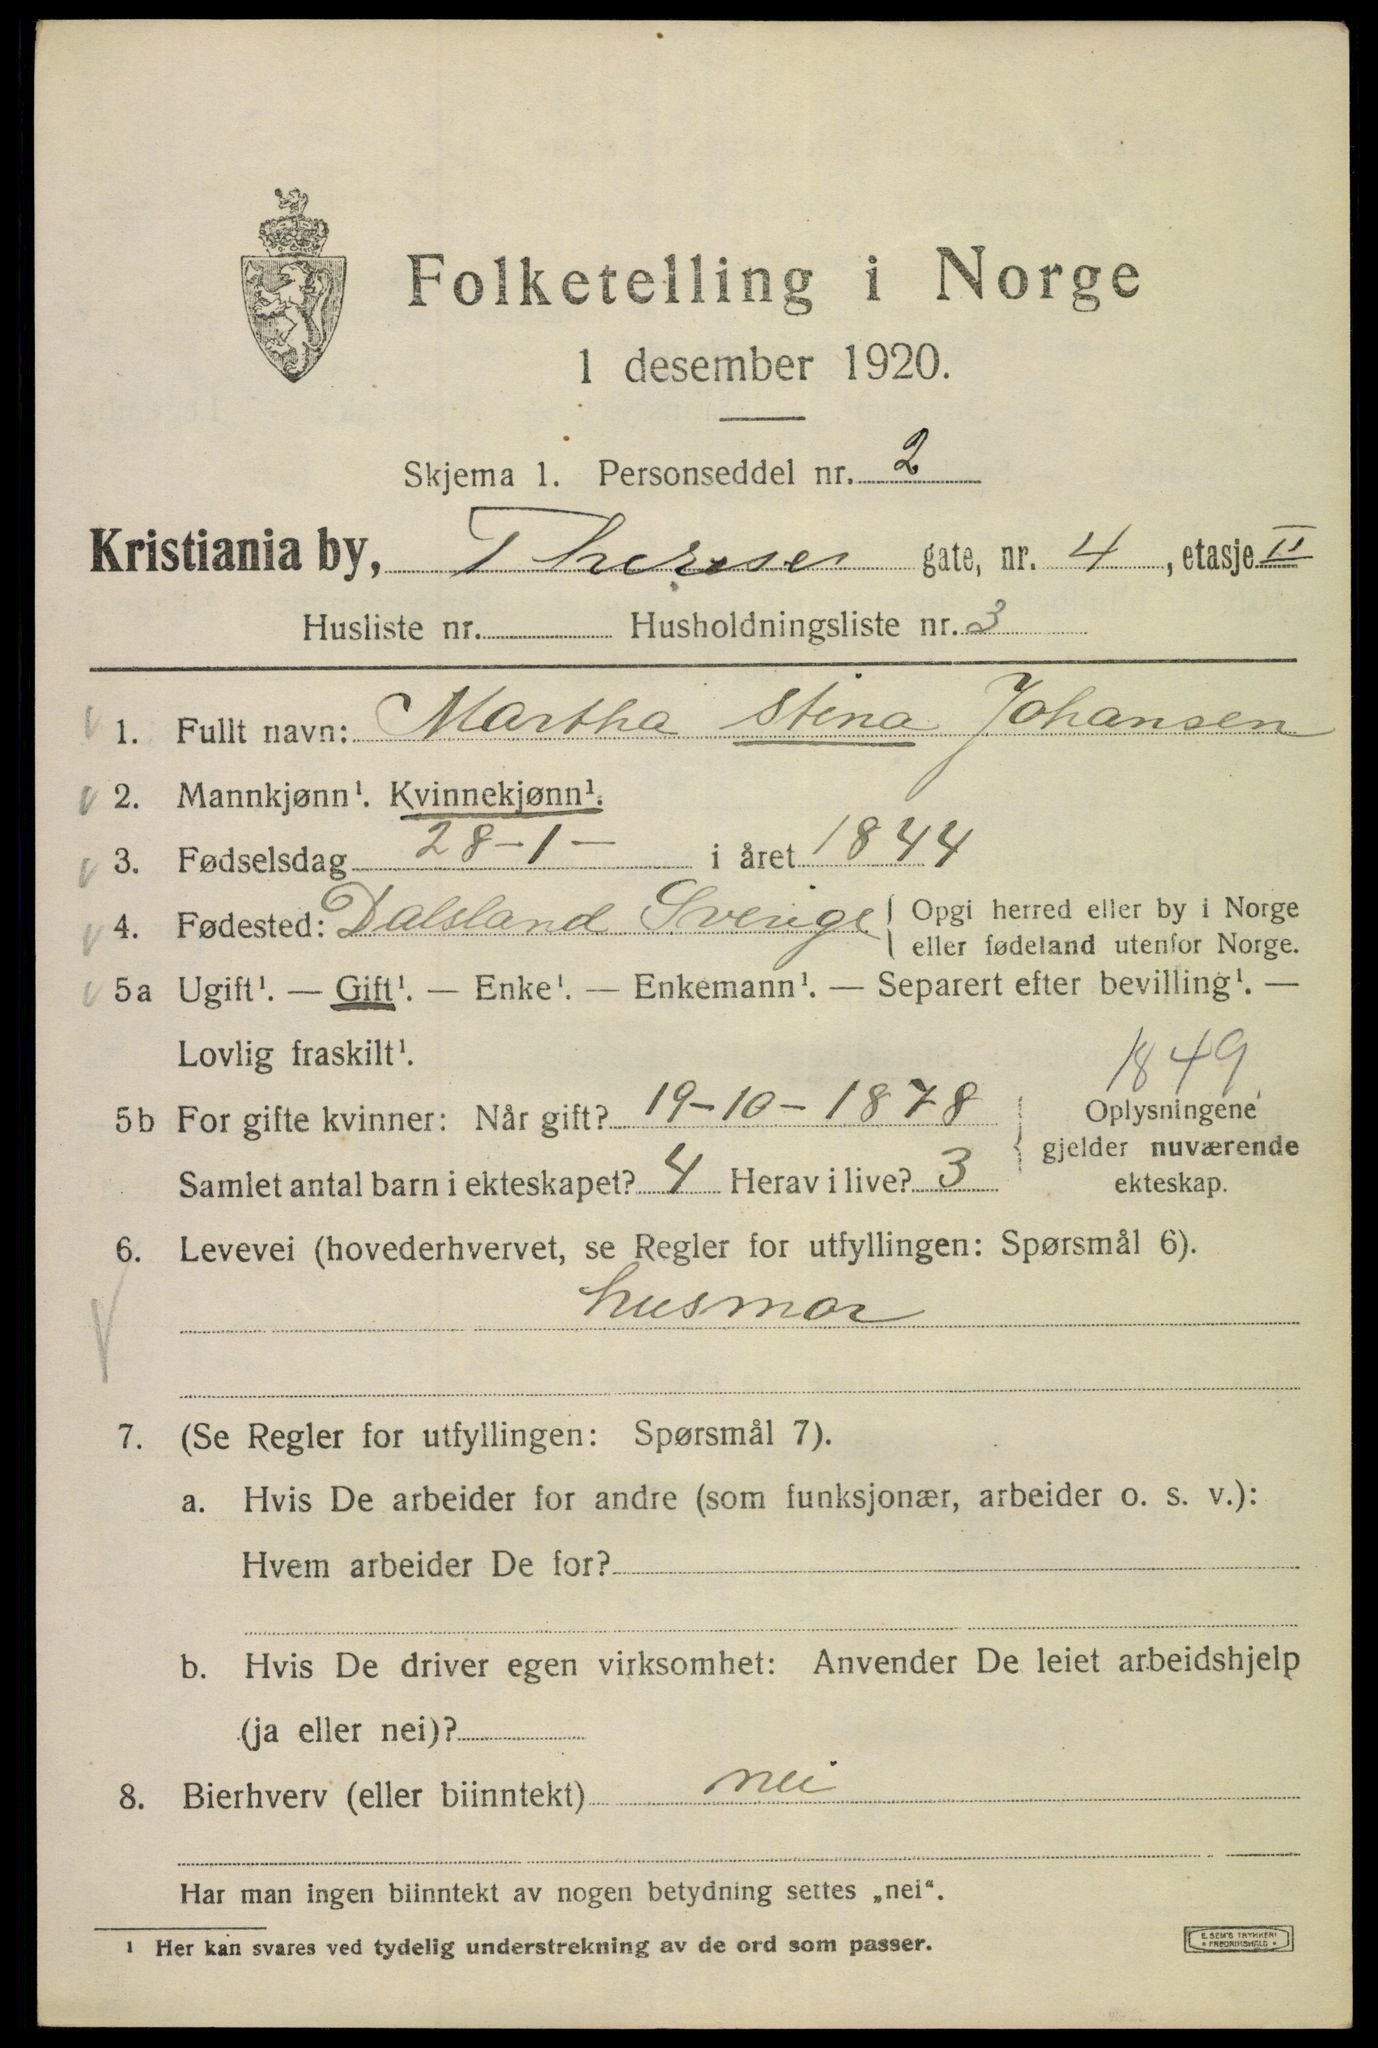 Folketelling i Norge
1 desember 1920.
Skjema 1. Personseddel nr. 2
Kristiania by, Thereses gate, nr. 4, etasje II
Husliste nr. Husholdningsliste nr. 3
1. Fullt navn: Martha Stina Johansen
2. Mannkjønn¹. Kvinnekjønn¹.
3. Fødselsdag 28-1- i året 1844
4. Fødested: Dalsland Sverige { Opgi herred eller by i Norge
eller fødeland utenfor Norge.
5a Ugift¹. — Gift¹. — Enke¹. — Enkemann¹. — Separert efter bevilling¹. —
Lovlig fraskilt¹.
1849
5b For gifte kvinner: Når gift? 19-10-1878 { Oplysningene
gjelder nuværende
Samlet antal barn i ekteskapet? 4 Herav i live? 3 ekteskap.
6. Levevei (hovederhvervet, se Regler for utfyllingen: Spørsmål 6).
husmor
7. (Se Regler for utfyllingen: Spørsmål 7).
a. Hvis De arbeider for andre (som funksjonær, arbeider o. s. v.):
Hvem arbeider De for?
b. Hvis De driver egen virksomhet: Anvender De leiet arbeidshjelp
(ja eller nei)?
8. Bierhverv (eller biinntekt) nei
Har man ingen biinntekt av nogen betydning settes „nei“.
¹ Her kan svares ved tydelig understrekning av de ord som passer.
E. SEM'S TRYKKERI
• FREDRIKSHALD •